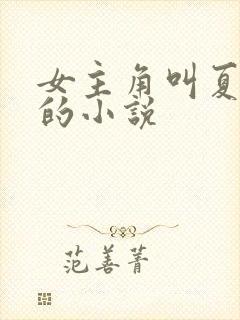 女主角叫夏
的小说
范善菁